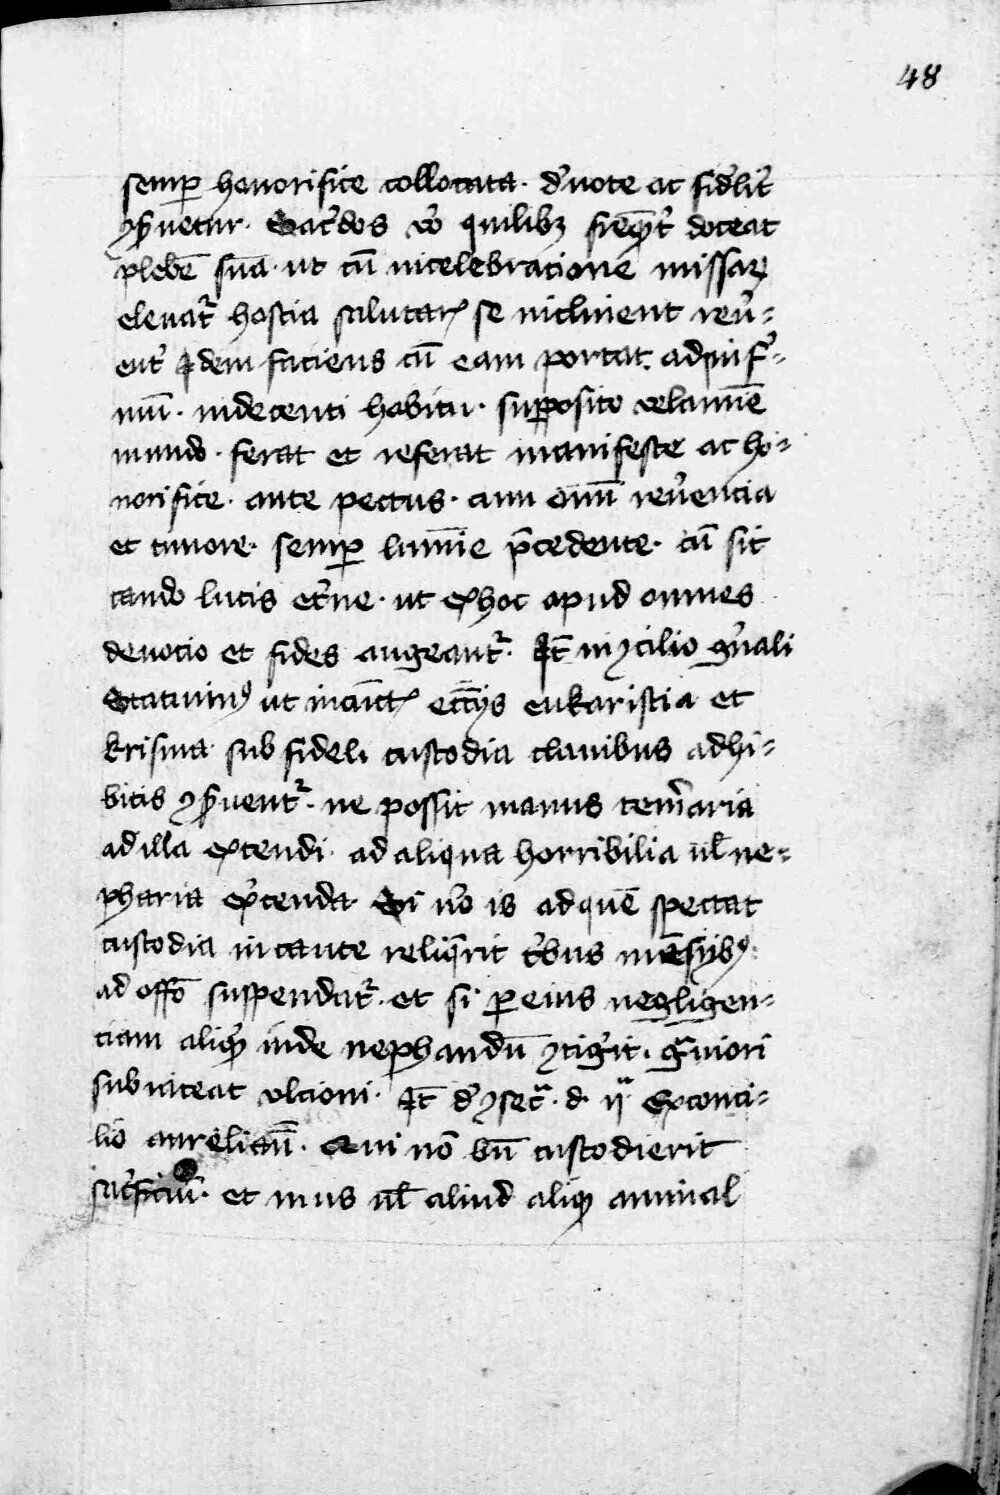 48
semp honorifice collocata. d'uote ac fid'lit'
ꝯẜuetur. Sac'dos v'o quilibꝫ freq̄nt' doceat
plebē suā. ut cū in celebracione missaꝝ
eleuat᷑ hostia salutar̄ se inclinent reu'-
ent' Idem faciens cū eam portat. ad infr'-
mū. in decenti habitu. supposito velamīe
mundo. ferat et referat manifeste ac ho-
norifice. ante pectus. cum omī reu'encia
et timore. semꝑ lumīe p̄cedente. cū sit
cando lucis et'ne. ut ex hoc apud omnes
deuocio et fides augeant᷑. Itē in ꝯcilio gn'ali
Statuimꝰ ut in cūct̄ ecc̄ijs eukaristia et
krisma sub fideli custodia clauibus adhi-
bitis ꝯẜuent᷑. ne possit manus tem'aria
ad illa extendi. ad aliqua horribilia ul̄ ne-
pharia ex'cenda Si v'o is ad quē spectat
custodia incaute reliq̄rit t'bus mēsybꝰ.
ad offō suspendat᷑. et si ꝑ eius negligen-
ciam aliqd' inde nephandū ꝯtig'it. g̃uiori
subiaceat vlcioni. Itē d' ꝯsec̄r. d. ij Ex conci-
lio aurelian̄. Qui nō bn̄ custodierit
sac'ficiū. et mus ul̄ aliud aliqd' animal